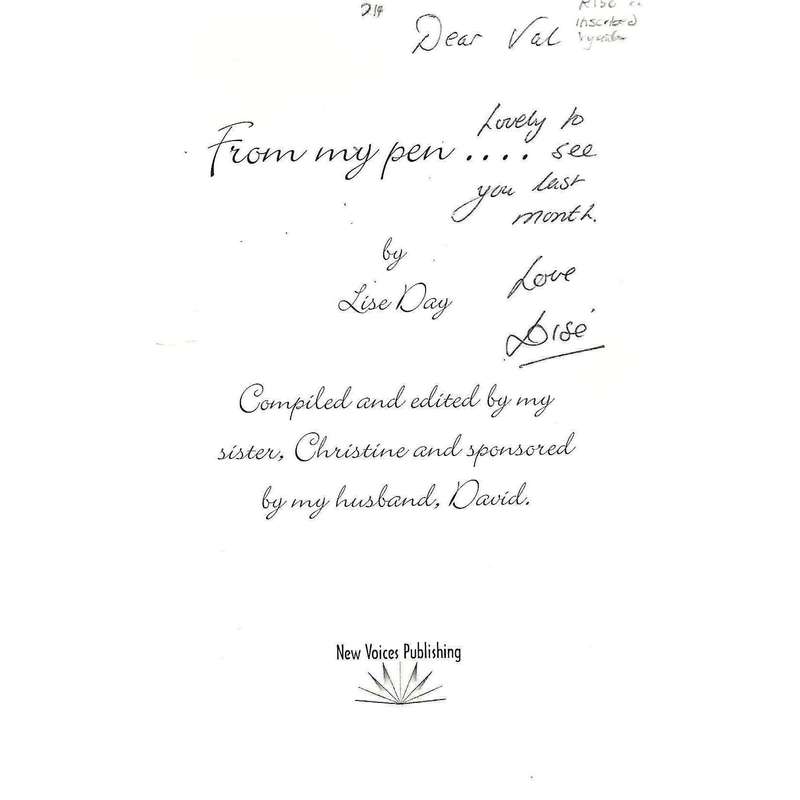 Dear Val
inscribed
Lovely to
From my pen .... see
you last
month.
by
Lise Day
Love
Lisé
Compiled and edited by my
sister, Christine and sponsored
by my husband, David.
New Voices Publishing